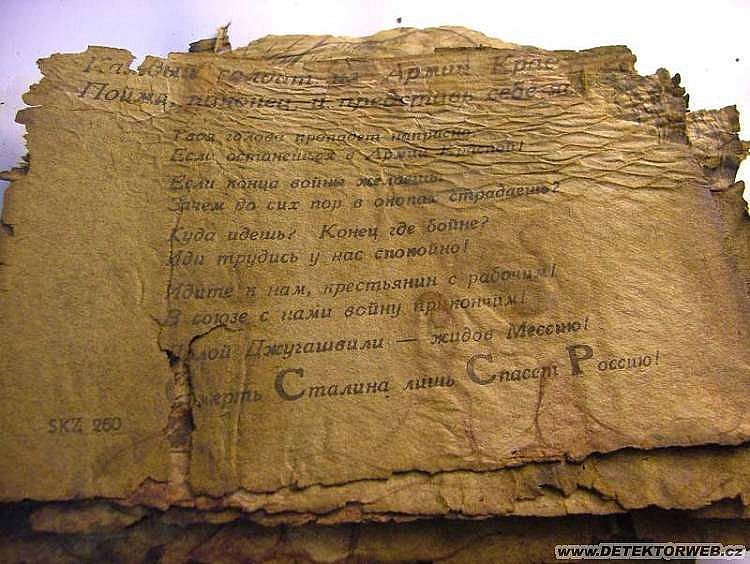 Каждый голоdaет из Армии Крас
Пойми, наконец, и представь себе
Твоя голова пропадет напрасно
Если останешься в Армии Красной!
Если конца войны желаешь
Зачем до сих пор в окопах страдаешь?
Куда идешь? Конец где бойне?
Иди трудись у нас спокойно!
Идите к нам, крестьянин с рабочим!
В союзе с нами войну прикончим!
Долой Джугашвили — жидов Мессию!
Смерть Сталина лишь Спасет Россию!
SKZ 260
www.DETEKTORWEB.cz